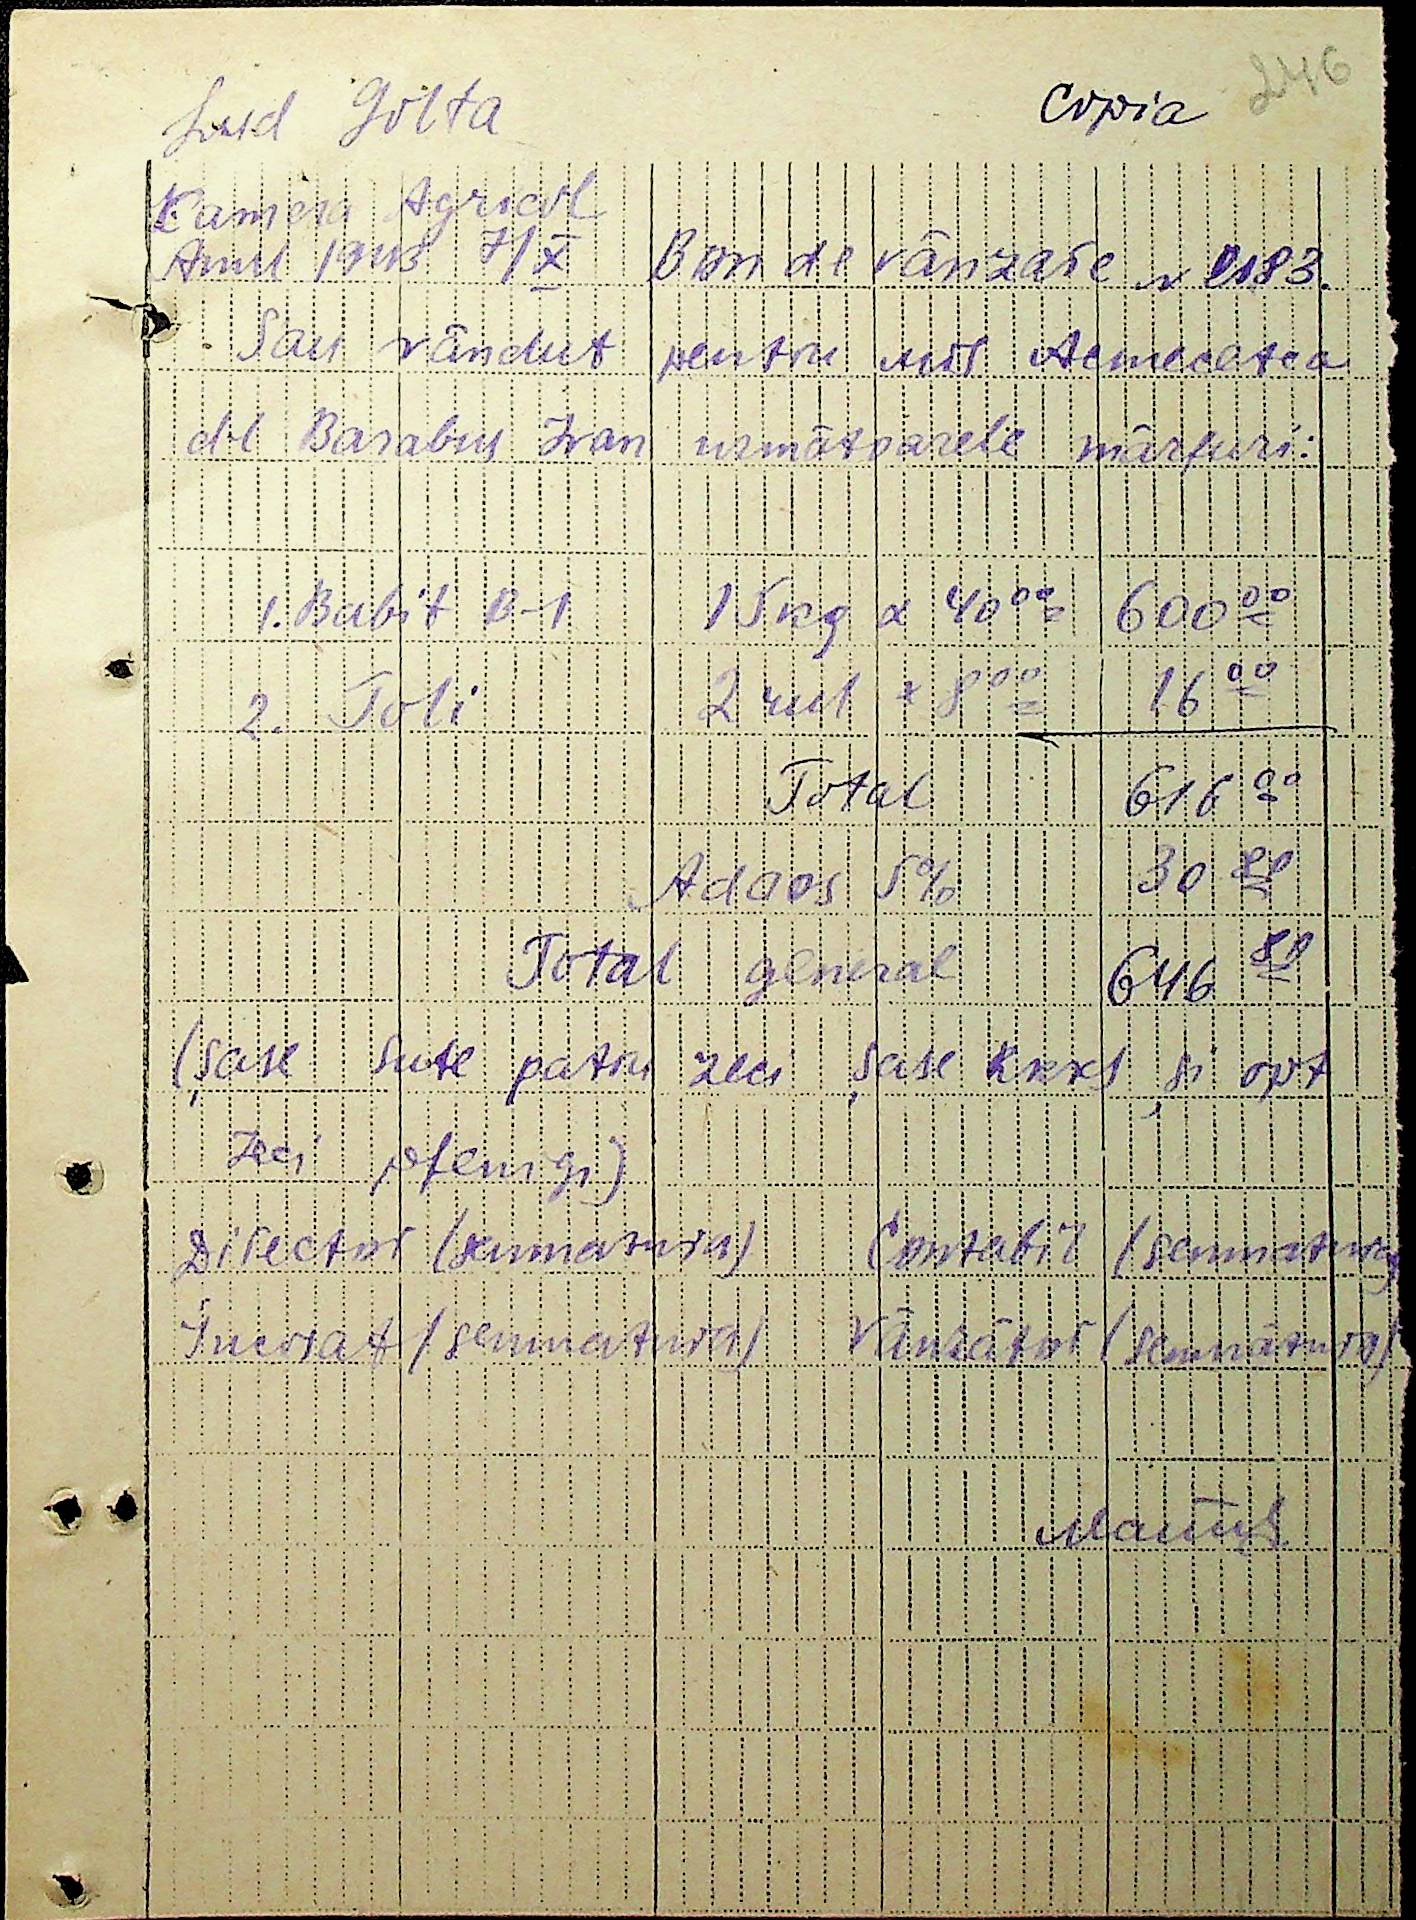 Jud Golta Copia 246
Kamera Agricol
Anul 1943 7/X Bon de vânzare N 0183.
Sau vândut pentru Acmecetca
dl Barabus Ivan următoarele mărfuri:
1. Babit B-1 15 kg x 40 00 600 00
2. Toli 2 rul x 8 00 16 00
Total 616 00
Adaos 5% 30 80
Total general 646 80
(Șase sute patru zeci șase Rkks și opt
zeci pfenigi)
Director (semnatura) Contabil (semnatura)
Incasat (semnatura) Vânzător (semnătura)